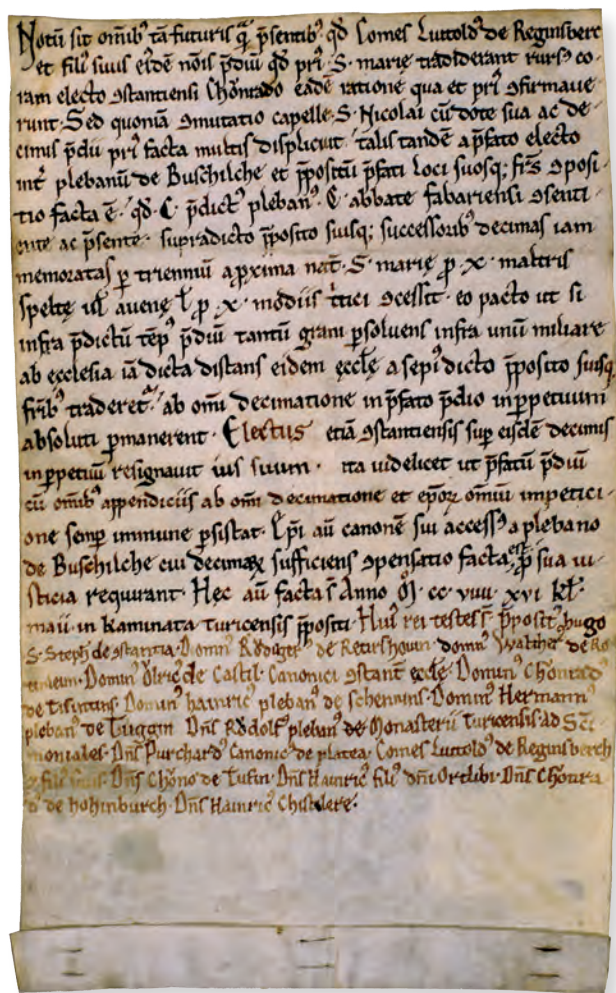 Notū sit omĩbꝰ tā futuris q̃ p̃sentibꝰ qd̄ Comes Luttoldꝰ de Reginsberc
et filiꝰ suus eidē nõis p̄diū qd̄ pri᷒ S. marię tradiderant rursꝰ co-
ram electo ꝯstantiensi Chõnrado eadē ratione qua et pri᷒ ꝯfirmaue
runt. Sed quoniā ꝯmutatio capelle S. Nicolai cū dote sua ac de
cimis p̄dii pri᷒ facta multis displicuit talis tandē a p̄fato electo
int᷒ plebanū de Buschilche et p̄positū p̄fati loci suosq; fr̃s ꝯposi-
tio facta ē. qd̄ C. p̄dictꝰ plebanꝰ C. abbate fabariensi ꝯsenti-
ente ac p̄sente. supradicto p̄posito suisq; successoribꝰ decimas iam
memoratas p̱ triennuī a p̱xima nat̄. S. marię ꝓ .x. maltris
speltę uł auenę ł ꝓ .x. modiis t̄tici ꝯcessit. eo pacto ut si
infra p̄dictū tēpꝰ p̄diū tantū grani p̱soluens infra unū miliare
ab ęcclesia iā dicta distans eidem ęccłę a sepi᷒dicto p̄posito suisq;
fr̄ibꝰ traderet᷒. ab omĩ decimatione in p̄fato p̄dio in p̱petuum
absoluti p̱manerent. Electus etiā ꝯstantiensis sup̱ eisdē decimis
in p̱petuū resignauit ius suum. ita uidelicet ut p̄fatū p̄diū
cū omĩbꝰ appendiciis ab omĩ decimatione et ep̄oꝝ omniū impetici-
one semp̱ immune p̱sistat. Ep̄i aū canonē sui accessꝰ a plebano
de Buschilche cui decimaꝝ sufficiens ꝯpensatio facta est, ꝓ sua iu-
sticia requirant. Hęc aū facta s̄ Anno M̊. cc. viiii. xvi kł.
maii. in kaminata turicensis p̄positi. Huiꝰ rei testes s̄. p̄positꝰ hugo
S. Stephi de ꝯstantia. Domnꝰ Rődigerꝰ de Retirshouin. domnꝰ Waltherꝰ de Ro-
Dominꝰ Ǒlricꝰ de Castil. Canonici ꝯstant̄ ęccłę. Dominꝰ Chǒnradꝰ
de Tisintins. Dominꝰ hainricꝰ plebanꝰ de Schennins. Dominꝰ Hermannꝰ
plebanꝰ de Tuggin. Dñs Rǒdolfꝰ plebanꝰ de Monasterii Turicensis. ad Scī-
moniales. Dñs Purchardꝰ Canonicꝰ de platea. Comes Luttoldꝰ de Reginsberch
filiꝰ suus. Dñs Chǒno de Tufin. Dñs Hainricꝰ filiꝰ dñi Ortlibi. Dñs Chǒnra-
dꝰ de hohinburch. Dñs Hainricꝰ Chistelere.